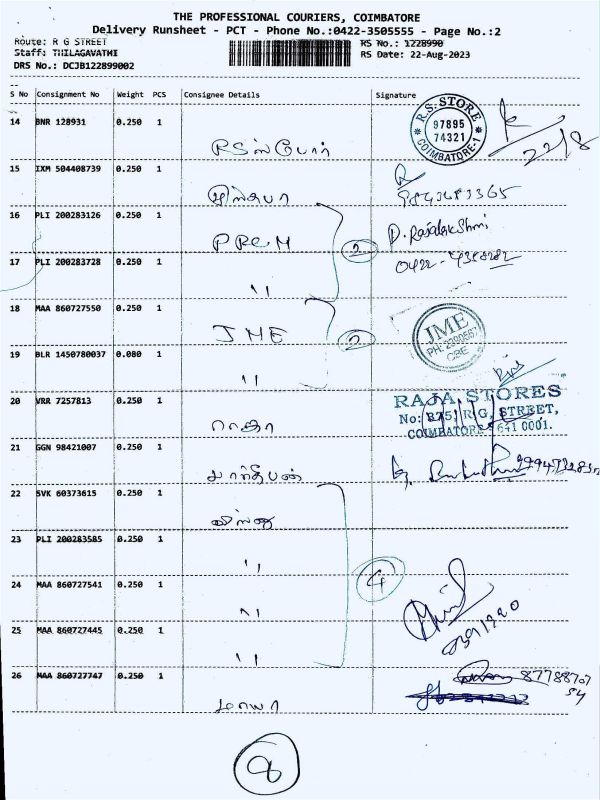 THE PROFESSIONAL COURIERS, COIMBATORE
Delivery Runsheet - PCT - Phone No.:0422-3505555 - Page No.:2
Route: R G STREET
RS No.: 1228990
Staff: THILAGAVATHI
RS Date: 22-Aug-2023
DRS No.: DCJB122899002
S No Consignment No Weight PCS Consignee Details Signature
14 BNR 128931 0.250 1
RS ஸ்டோர்
R.S. STORE
97895
74321
COIMBATORE-1
22/8
15 IXM 504408739 0.250 1
16 PLI 200283126 0.250 1
PRCM
2
P. Rajalakshmi
17 PLI 200283728 0.250 1
"
18 MAA 860727550 0.250 1
JME
2
JME
PH: 2390567
CBE
19 BLR 1450780037 0.080 1
"
20 VRR 7257813 0.250 1
ராஜா
RAJA STORES
No: 875, R.G. STREET,
COIMBATORE - 641 0001.
21 GGN 98421007 0.250 1
பார்த்திபன்
22 SVK 60373615 0.250 1
23 PLI 200283585 0.250 1
"
4
24 MAA 860727541 0.250 1
"
25 MAA 860727445 0.250 1
"
26 MAA 860727747 0.250 1
மாயா
8